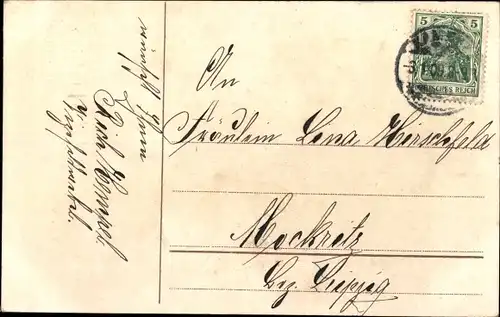 wünscht Ihnen
Rich. Hempel
u.
5 5
DEUTSCHES REICH
An
Fräulein Lena Herschfeld
Mockritz
Bz. Leipzig